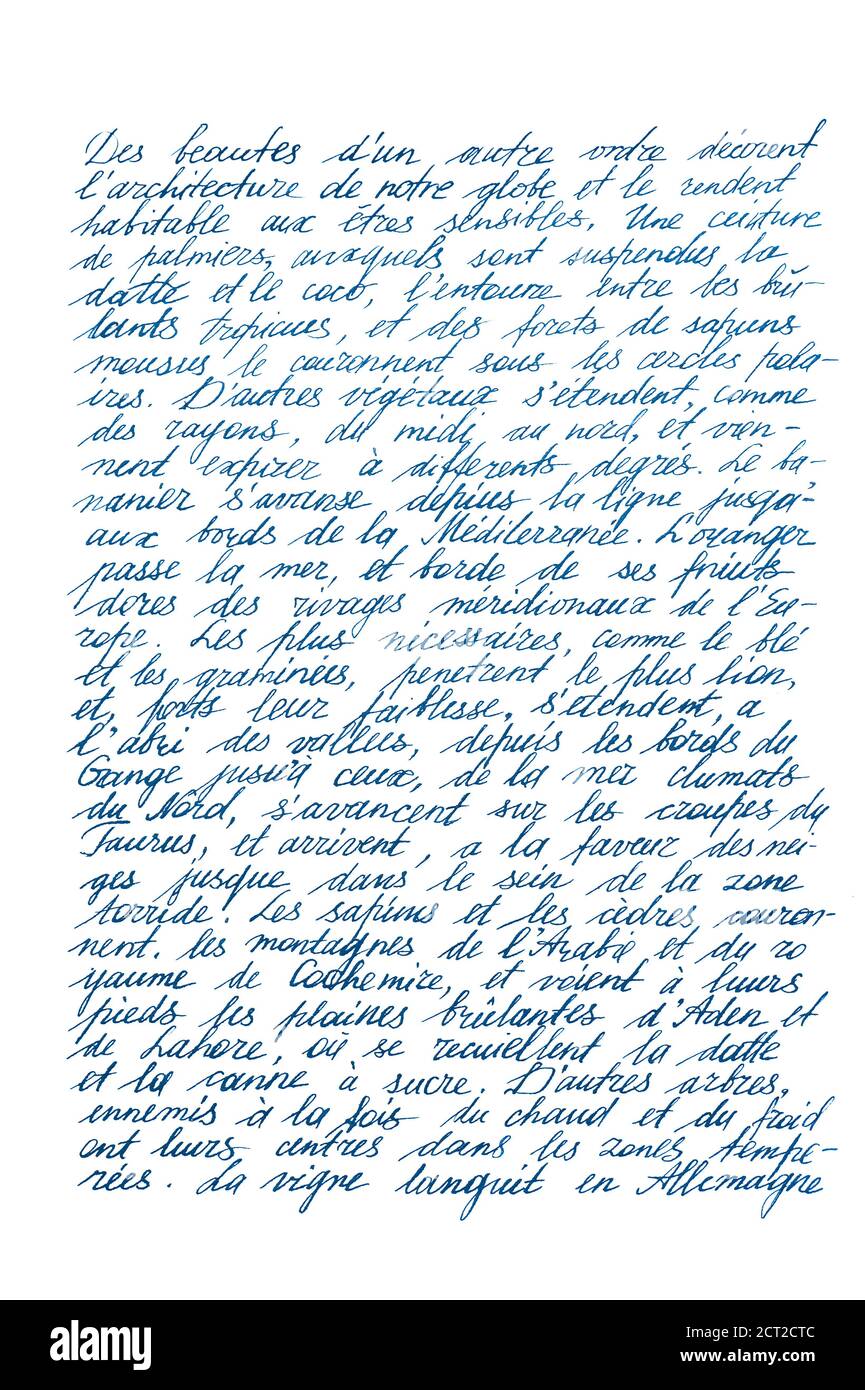 Des beautes d'un autre ordre décorent
l'architecture de notre globe et le rendent
habitable aux êtres sensibles. Une ceinture
de palmiers, auxquels sont suspendus la
datte et le coco, l'entoure entre les brû-
lants tropicues, et des forets de sapins
mousus le couronnent sous les cercles pola-
ires. D'autres végétaux s'étendent, comme
des rayons, du midi au nord, et vien-
nent expirer à differents degrés. Le ba-
nanier s'avanse depius la ligne jusqà'
aux bords de la Méditerranée. L'oranger
passe la mer, et borde de ses friuts
dores des rivages méridionaux de l'Eu-
rope. Les plus nécessaires, comme le blé
et les graminées, penetrent le plus lion,
et, forts leur faiblesse, s'etendent, a
l'abri des vallees, depuis les bords du
Gange jusu'à ceux, de la mer clumats
du Nord, s'avancent sur les croupes du
Taurus, et arrivent, a la faveur des nei-
ges jusque dans le sein de la zone
torride. Les sapins et les cèdres couron-
nent. les montagnes de l'Arabie et du ro
yaume de Cachemire, et voient à luurs
pieds les plaines brûlantes d'Aden et
de Lahore, où se recuellent la datte
et la canne à sucre. D'autres arbres,
ennemis à la fois du chaud et du froid
ont luurs centres dans les zones tempe-
rées. La vigne languit en Allemagne
alamy
Image ID: 2CT2CTC
www.alamy.com